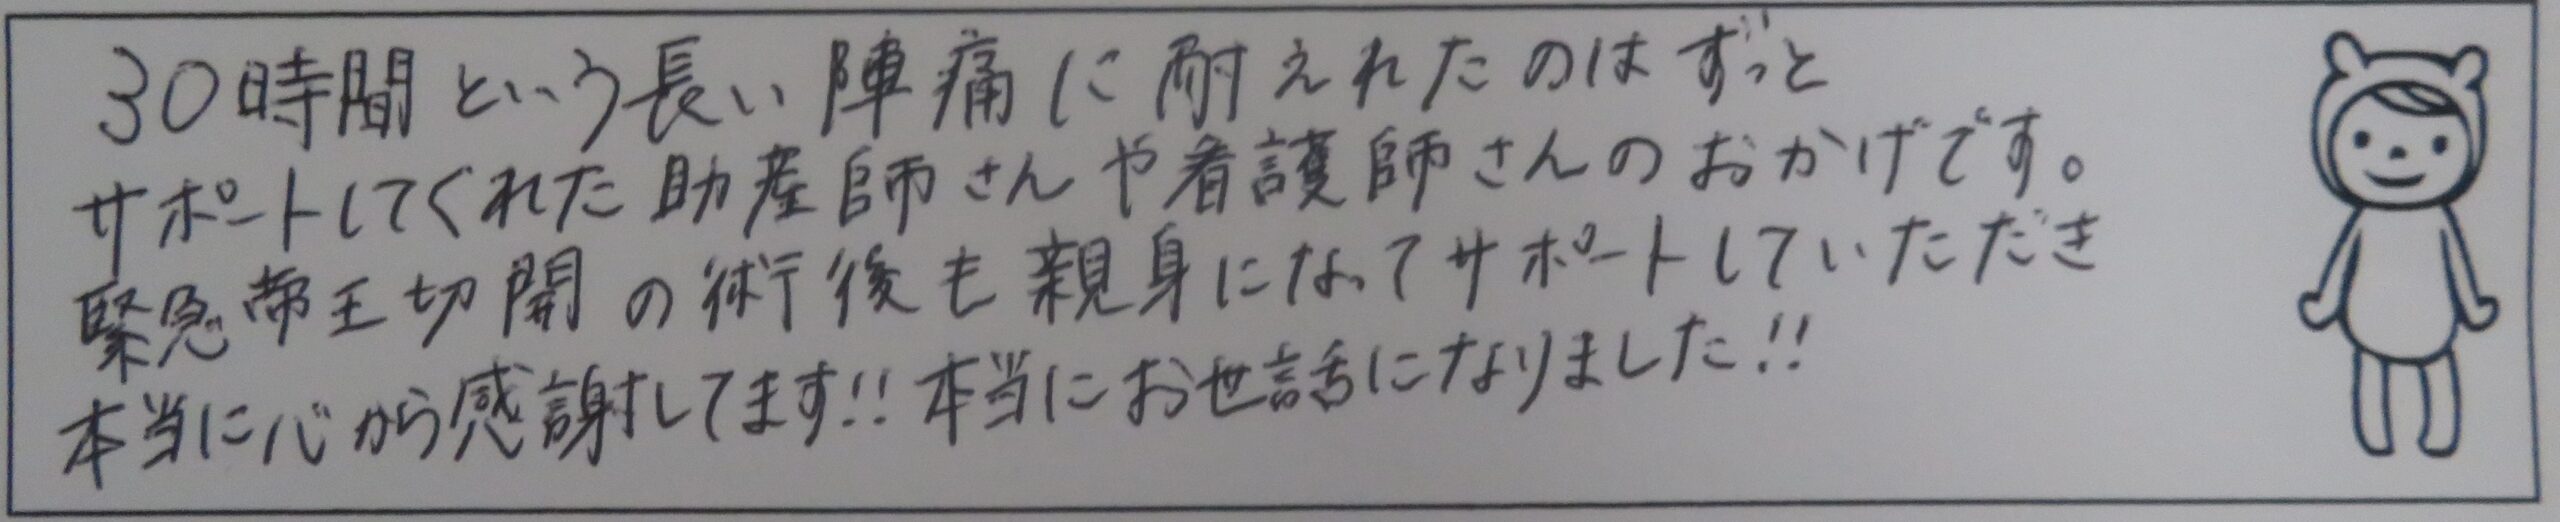 30時間という長い陣痛に耐えれたのはずっと
サポートしてくれた助産師さんや看護師さんのおかげです。
緊急帝王切開の術後も親身になってサポートしていただき
本当に心から感謝してます!! 本当にお世話になりました!!